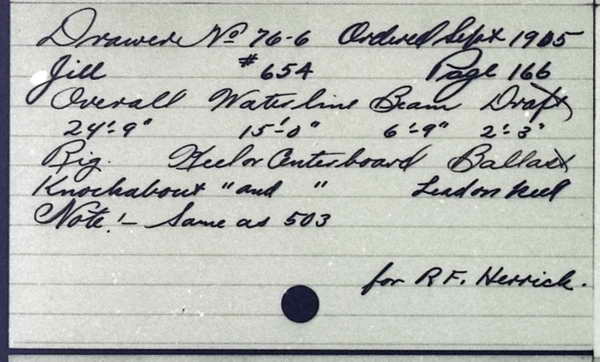 Drawer No 76-6 Ordered Sept 1905
Jill #654 Page 166
Overall Waterline Beam Draft
24'-9" 15'-0" 6'-9" 2'-3"
Rig. Keel or Centerboard Ballast
Knockabout " and " Lead on keel
Note!- Same as 503
for R.F. Herrick.